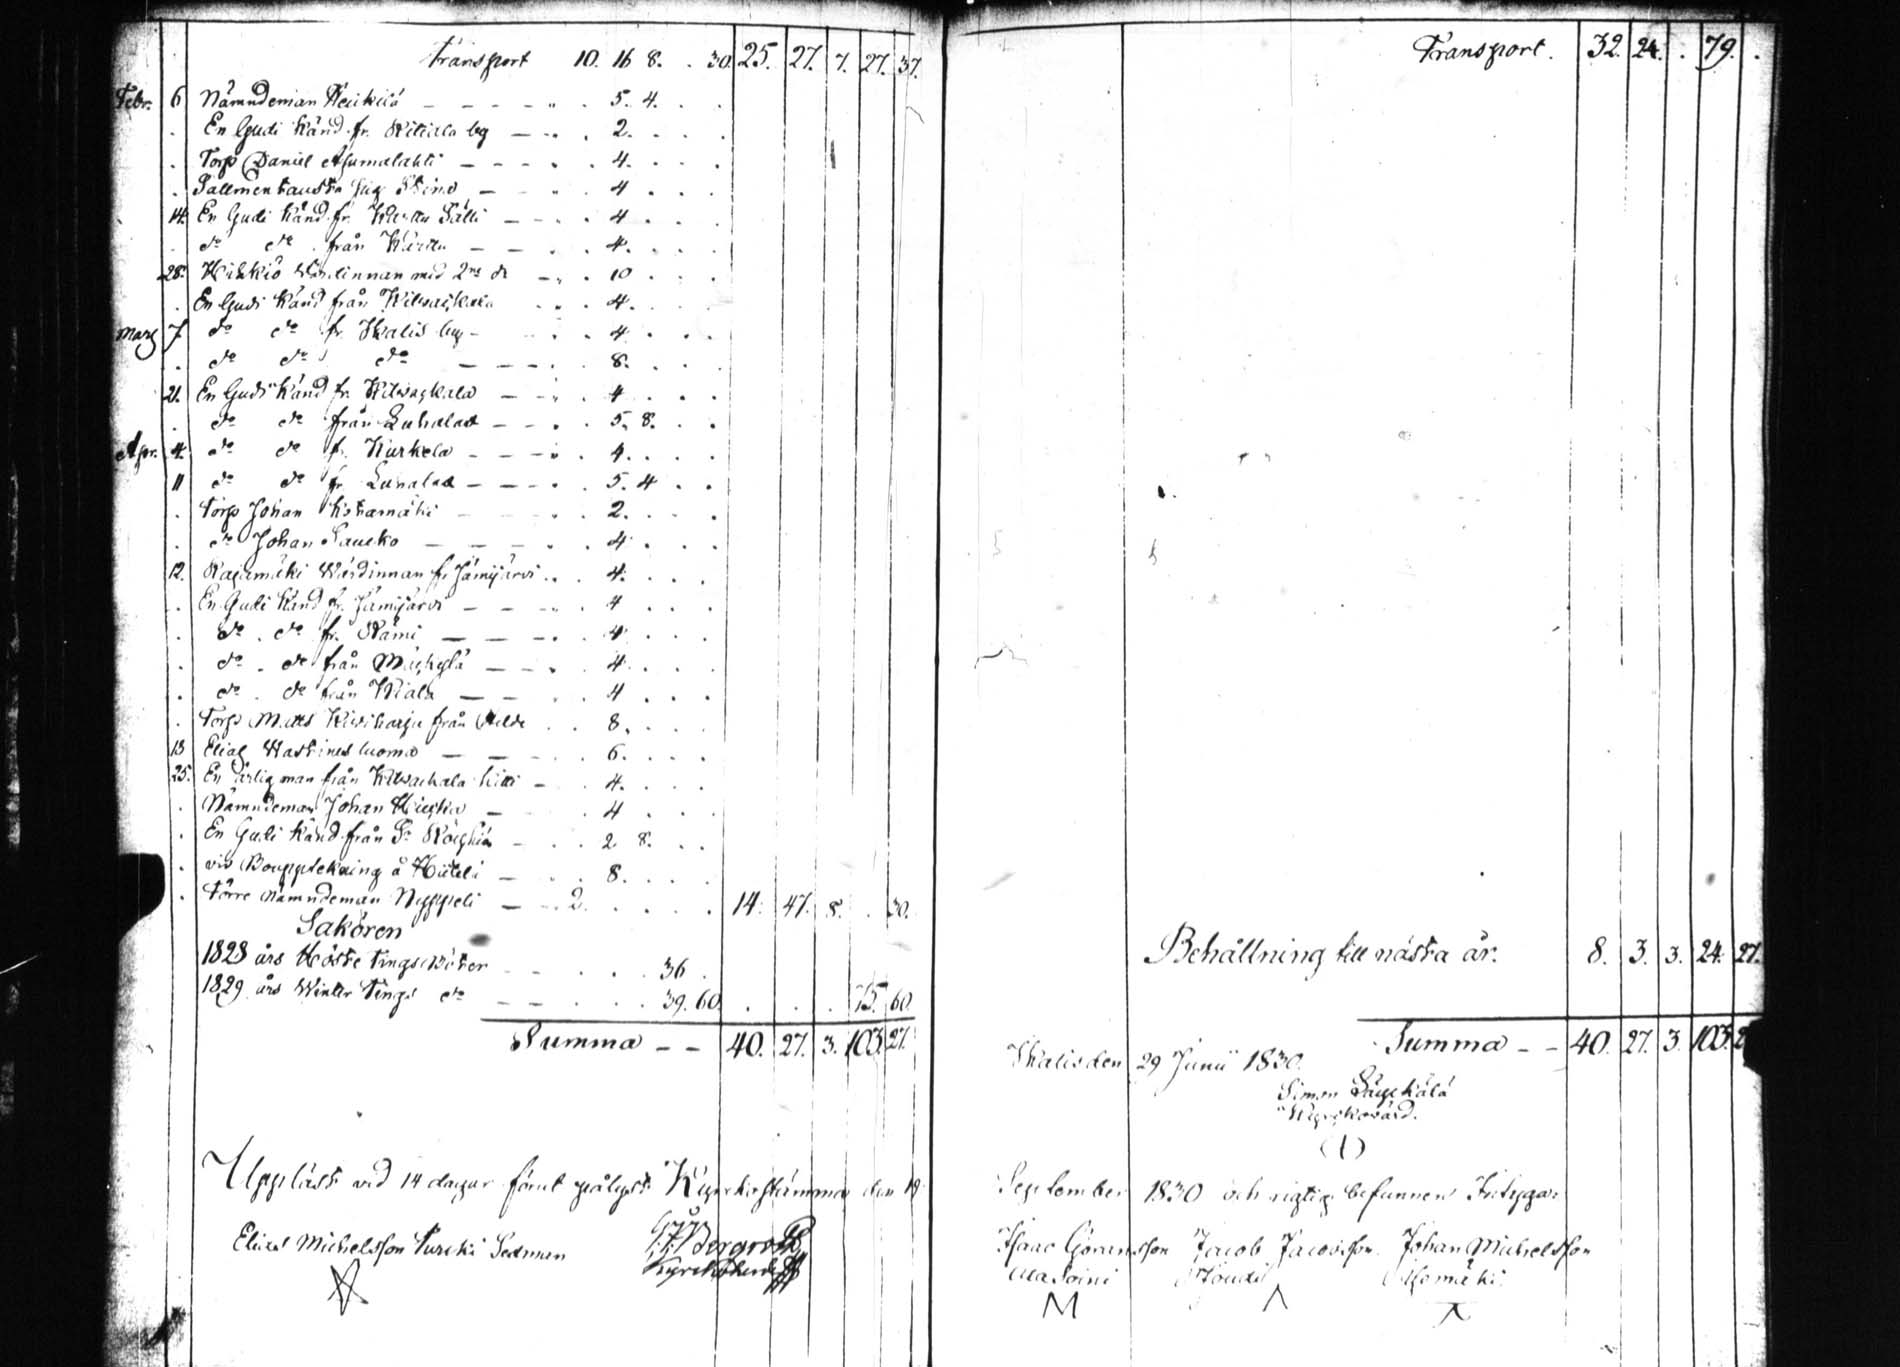 Transport 10. 16 8. . 30. 25. 27. 7. 27. 37.
Febr. 6 Nämndeman Heickilä — — 5. 4. . .
En Gudi känd fr. Kitiala by — 2. . . .
Torp Daniel Asumalahti — — 4. . . .
Sallmentausta — 4 . . .
14. En Gudi känd fr. Kurttu Sälli — 4 . . .
do do från — — 4. . . .
28. Heickiö Wärdinnan med 2ne do — 10 . . .
En Gudi känd från Kilwackala 4. . . .
Mars 7 do do fr. Ikalis by — 4 . . .
do do do — — 8. . . .
21. En Gudi känd fr. Kilwackala — 4 . . .
do do från Luhalax — — 5. 8. . .
Apr. 4. do do fr. Kurkela — — 4. . . .
11 do do fr. Luhalax — — 5. 4 . .
Torp Johan — 2. . . .
do Johan Saucko — — 4. . . .
12. Rajamäki Wärdinnan fr. Jämijärvi . . 4. . . .
En Gudi känd fr. Jämijärvi — — 4 . . .
do. do fr. Rämi — — 4 . . .
do. do från — — 4. . . .
do. do från Wiala — — 4 . . .
Torp Matts från . . 8. . . .
13 Elias — — 6. . . .
25. En ärlig man från Kilwackala — 4. . . .
Nämndeman Johan — 4 . . .
En Gudi känd från — 2 8. . .
vid Bouppteckning å — 8. . . .
Förre Nämndeman Nyppeli — 2. . . . . 14. 47. 8. . 30.
Saköron
1828 års Höste Tings Böter — . . . 36 .
1829 års Winter Tings do — — . . . 39. 60. . . . 75. 60.
Summa — — 40. 27. 3. 103. 27.
Uppläst vid 14 dagar förut pålyst Kyrkostämma den 19
Elias Michelsson Turcki Sexman
Bergroth
Kyrckoherde
Transport. 32. 24. . 79. .
Behållning till nästa år. 8. 3. 3. 24. 27.
Summa — — 40. 27. 3. 103. 2
Ikalis den 29 Junii 1830.
Simon
Kyrckovärd.
September 1830 och rigtig befunnen Intygar
Isaac Göransson Jacob Jacobsson Johan Michelsson
Ala Soini